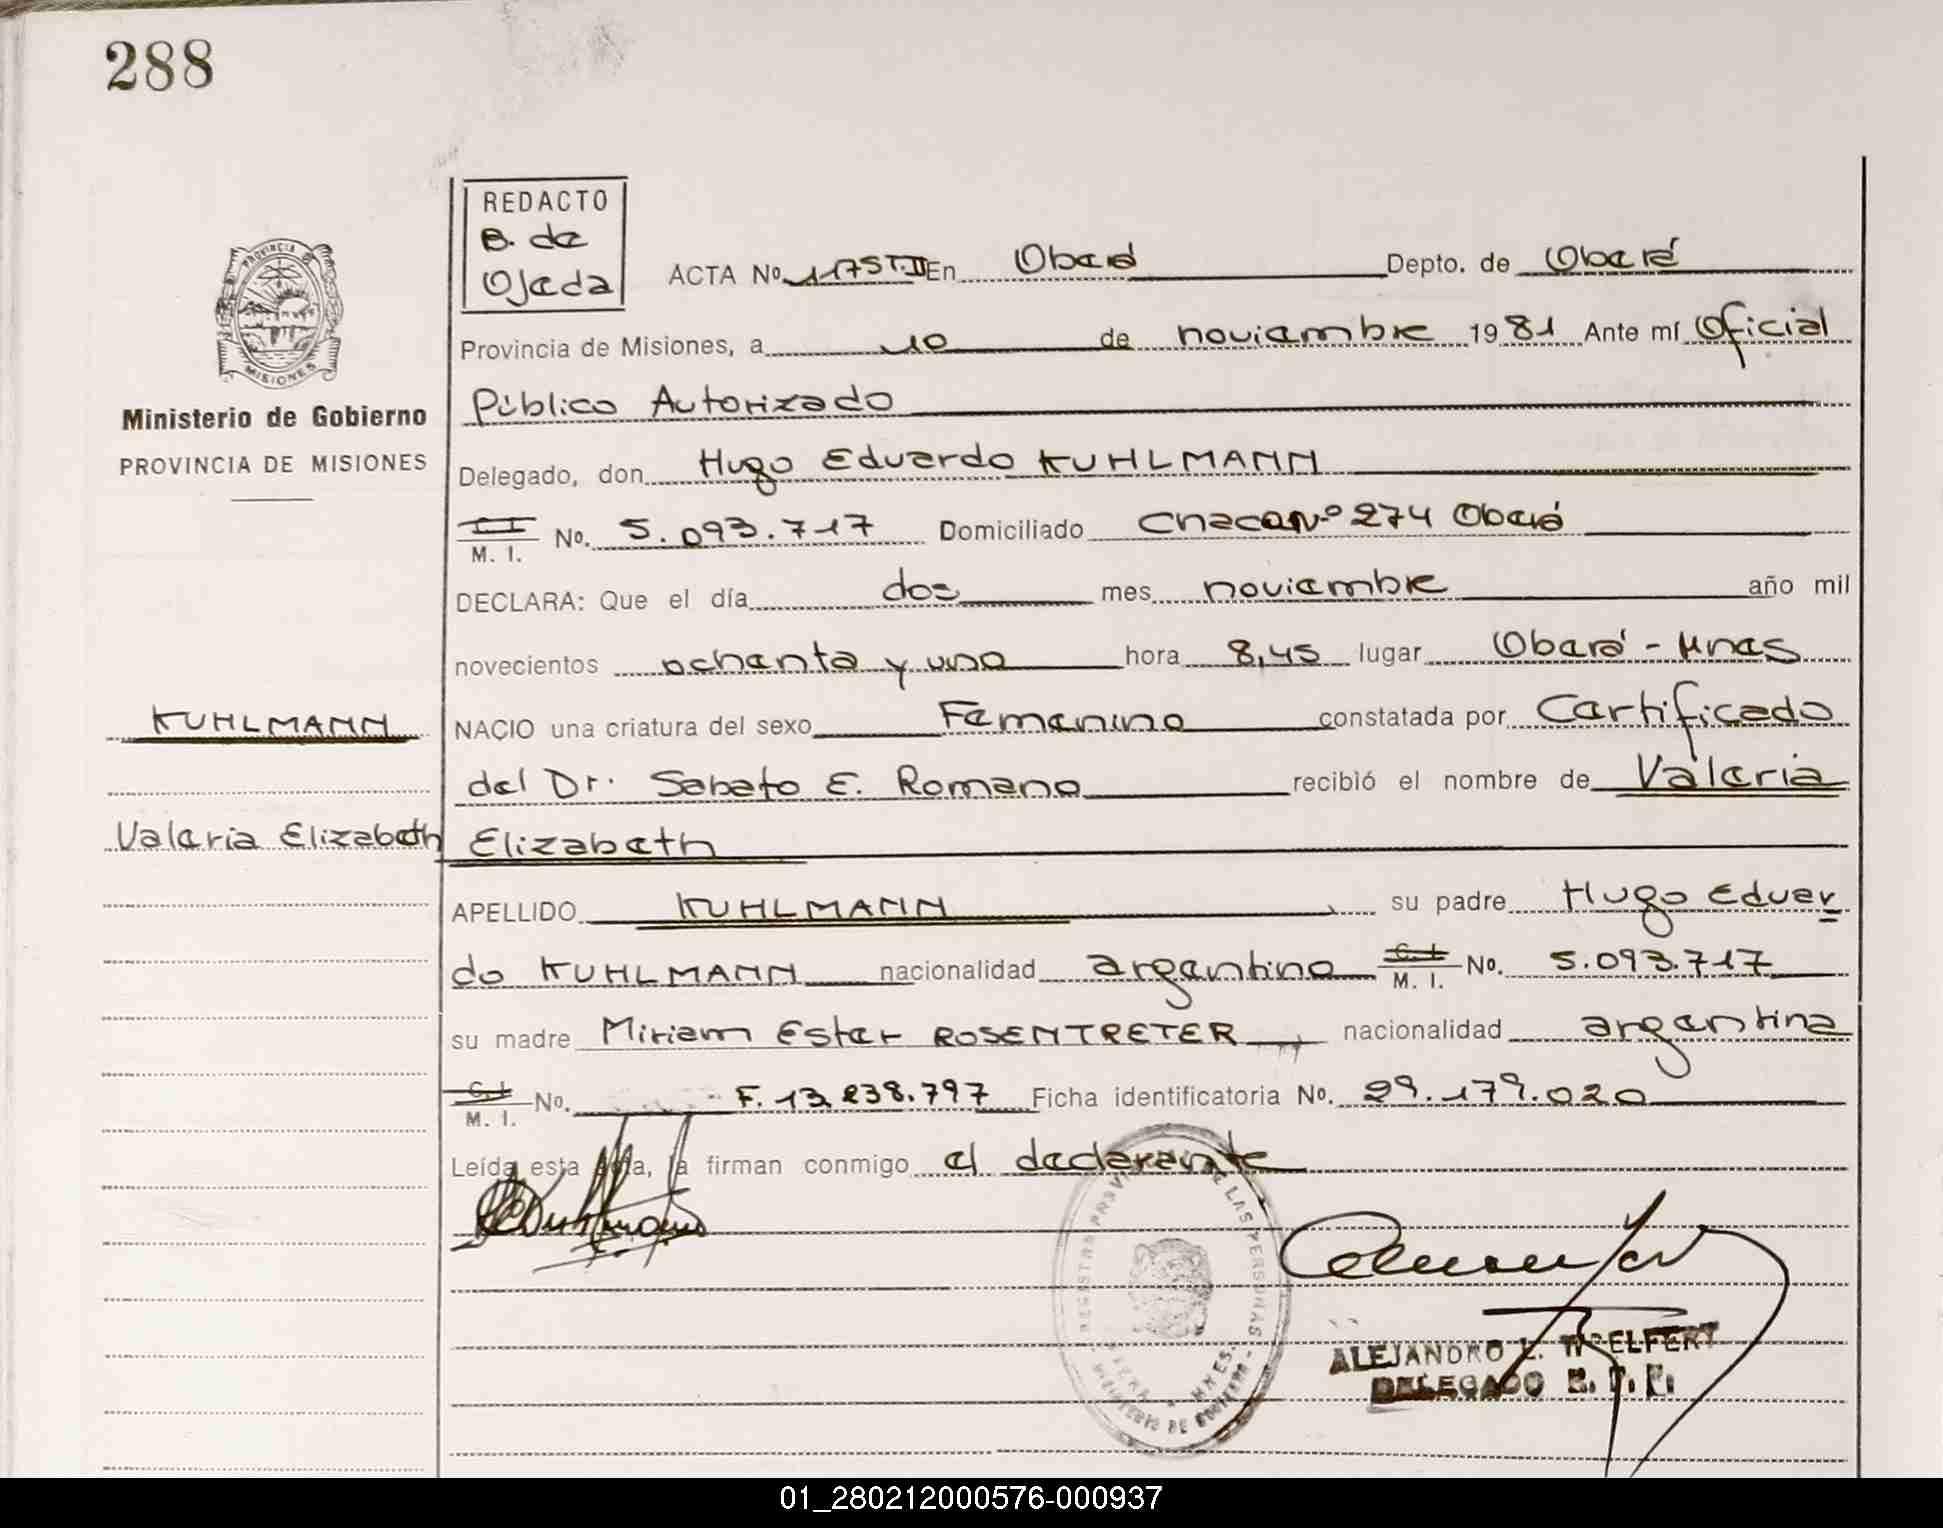 288
REDACTO
B. de
Ojeda
ACTA No. 1175T.II En Oberá Depto. de Oberá
Provincia de Misiones, a 10 de noviembre 1981 Ante mí Oficial
Público Autorizado
Ministerio de Gobierno
PROVINCIA DE MISIONES
PROVINCIA
MISIONES
Delegado, don Hugo Eduardo KUHLMANN
C I
M. I. No. 5.093.717 Domiciliado Chacra Nº 274 Oberá
DECLARA: Que el día dos mes noviembre año mil
novecientos ochenta y uno hora 8,45 lugar Oberá - Mnes
KUHLMANN
NACIO una criatura del sexo Femenino constatada por Certificado
del Dr. Sabato E. Romano recibió el nombre de Valeria
Valeria Elizabeth
Elizabeth
APELLIDO KUHLMANN su padre Hugo Eduar
do KUHLMANN nacionalidad argentino C. I. M. I. No. 5.093.717
su madre Miriam Ester ROSENTRETER, nacionalidad argentina
C. I. M. I. No. F. 13.238.797 Ficha identificatoria No. 29.179.020
Leída esta acta, la firman conmigo el declarante
DE LAS PERSONAS
ALEJANDRO L.
DELEGADO
01_280212000576-000937